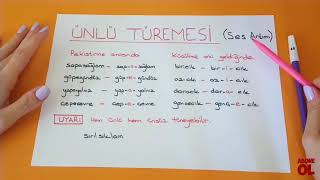 ÜNLÜ TÜREMESİ (Ses Artımı)
Pekiştirme sırasında
sapasağlam → sap-a-sağlam
güpegündüz → güp-e-gündüz
yapayalnız → yap-a-yalnız
çepeçevre → çep-e-çevre
Küçültme eki geldiğinde
biricik → bir-i-cik
azıcık → az-ı-cık
daracık → dar-a-cık
gencecik → genç-e-cik
UYARI
sırılsıklam
ABONE
OL